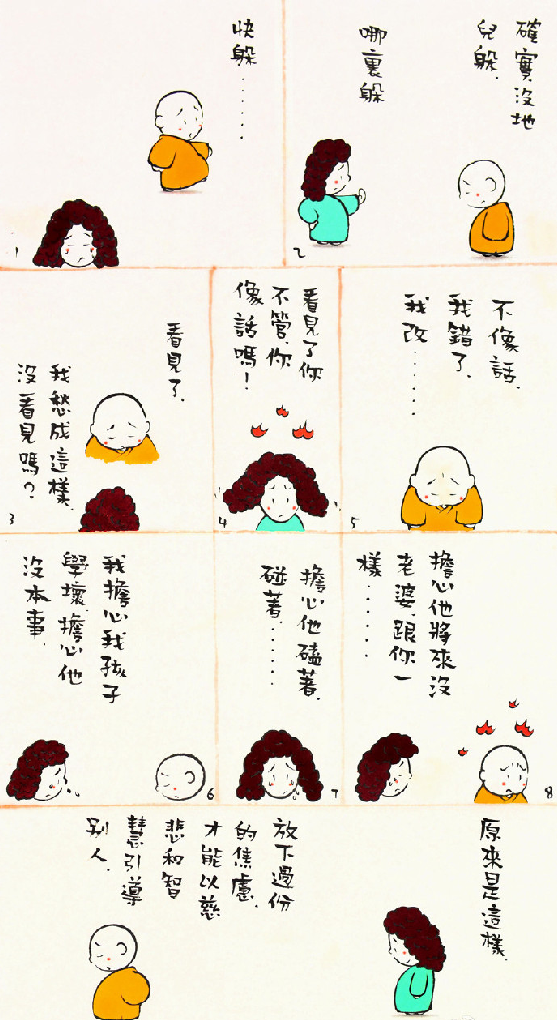 快躲......
1
確實沒地
兒躲.
哪裏躲
2
看見了.
我愁成這樣,
沒看見嗎?
3
看見了你
不管,你
像話嗎!
4
不像話.
我錯了.
我改......
5
我擔心我孩子
學壞,擔心他
沒本事.
6
擔心他磕著,
碰著......
7
擔心他將來沒
老婆,跟你一
樣......
8
原來是這樣.
放下過份
的焦慮,
才能以慈
悲和智
慧引導
別人.